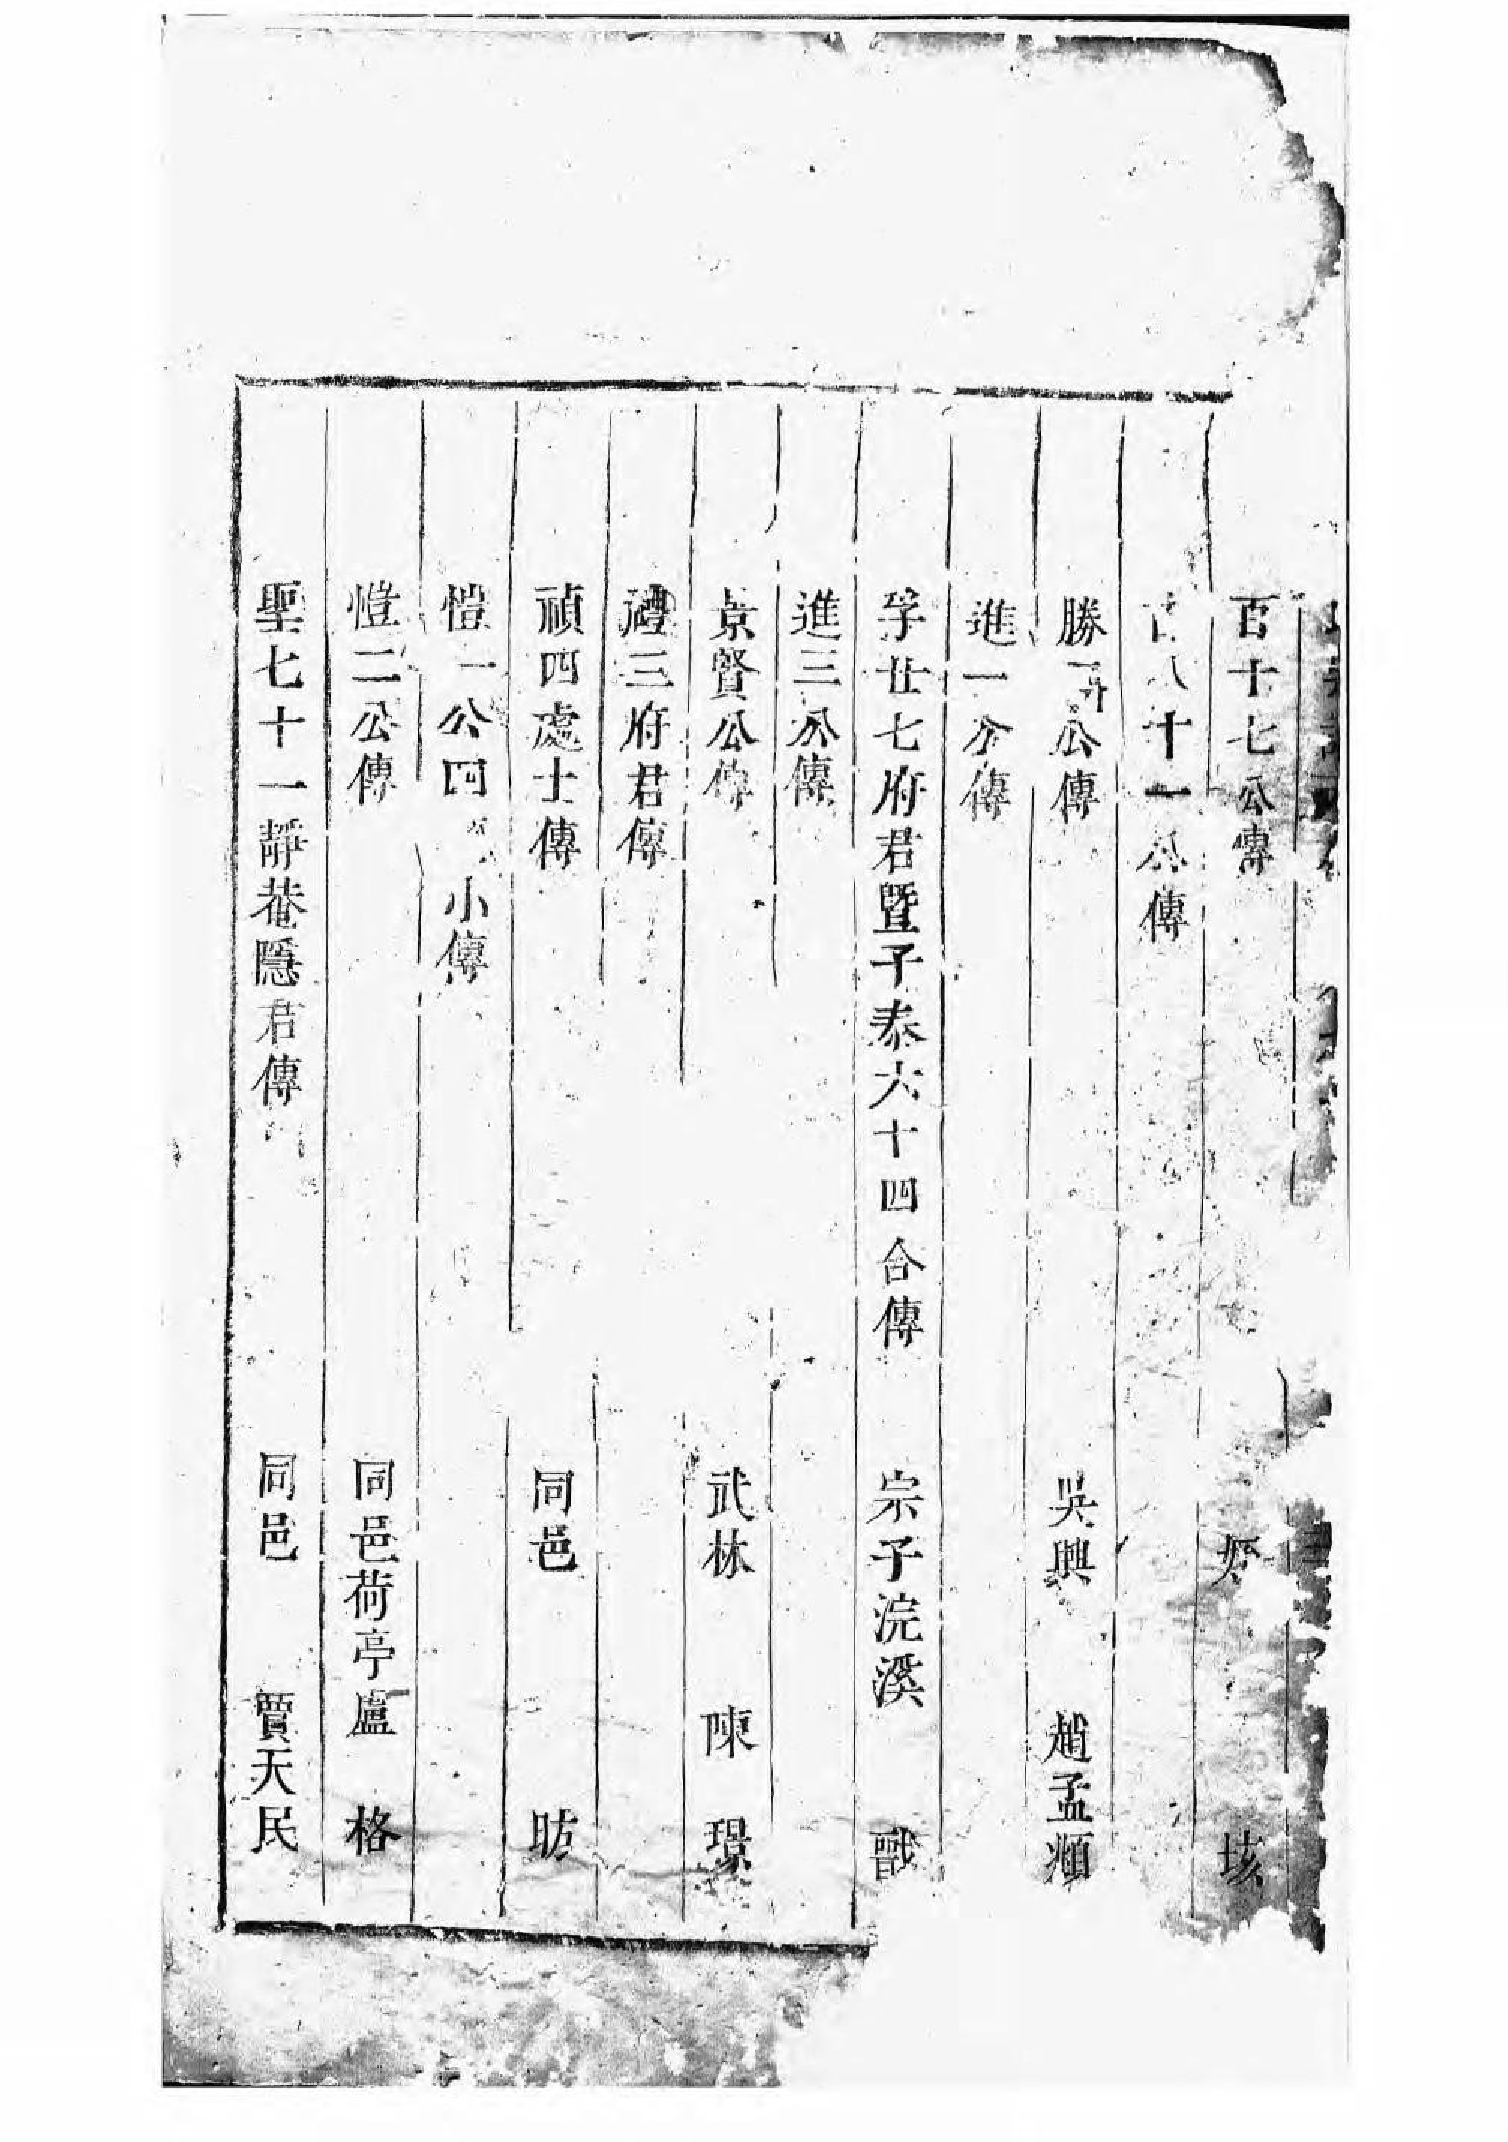 百十七公傳 垓
八十一公傳
勝公傳 吳興 趙孟頫
進一公傳
孚廿七府君暨子泰六十四合傳 宗子浣溪 戬
進三公傳
景賢公傳 武林 陳璟
禮三府君傳
禎四處士傳 同邑 昉
愷一公四小傳
愷二公傳 同邑荷亭盧 格
聖七十一靜菴隱君傳 同邑 賈天民